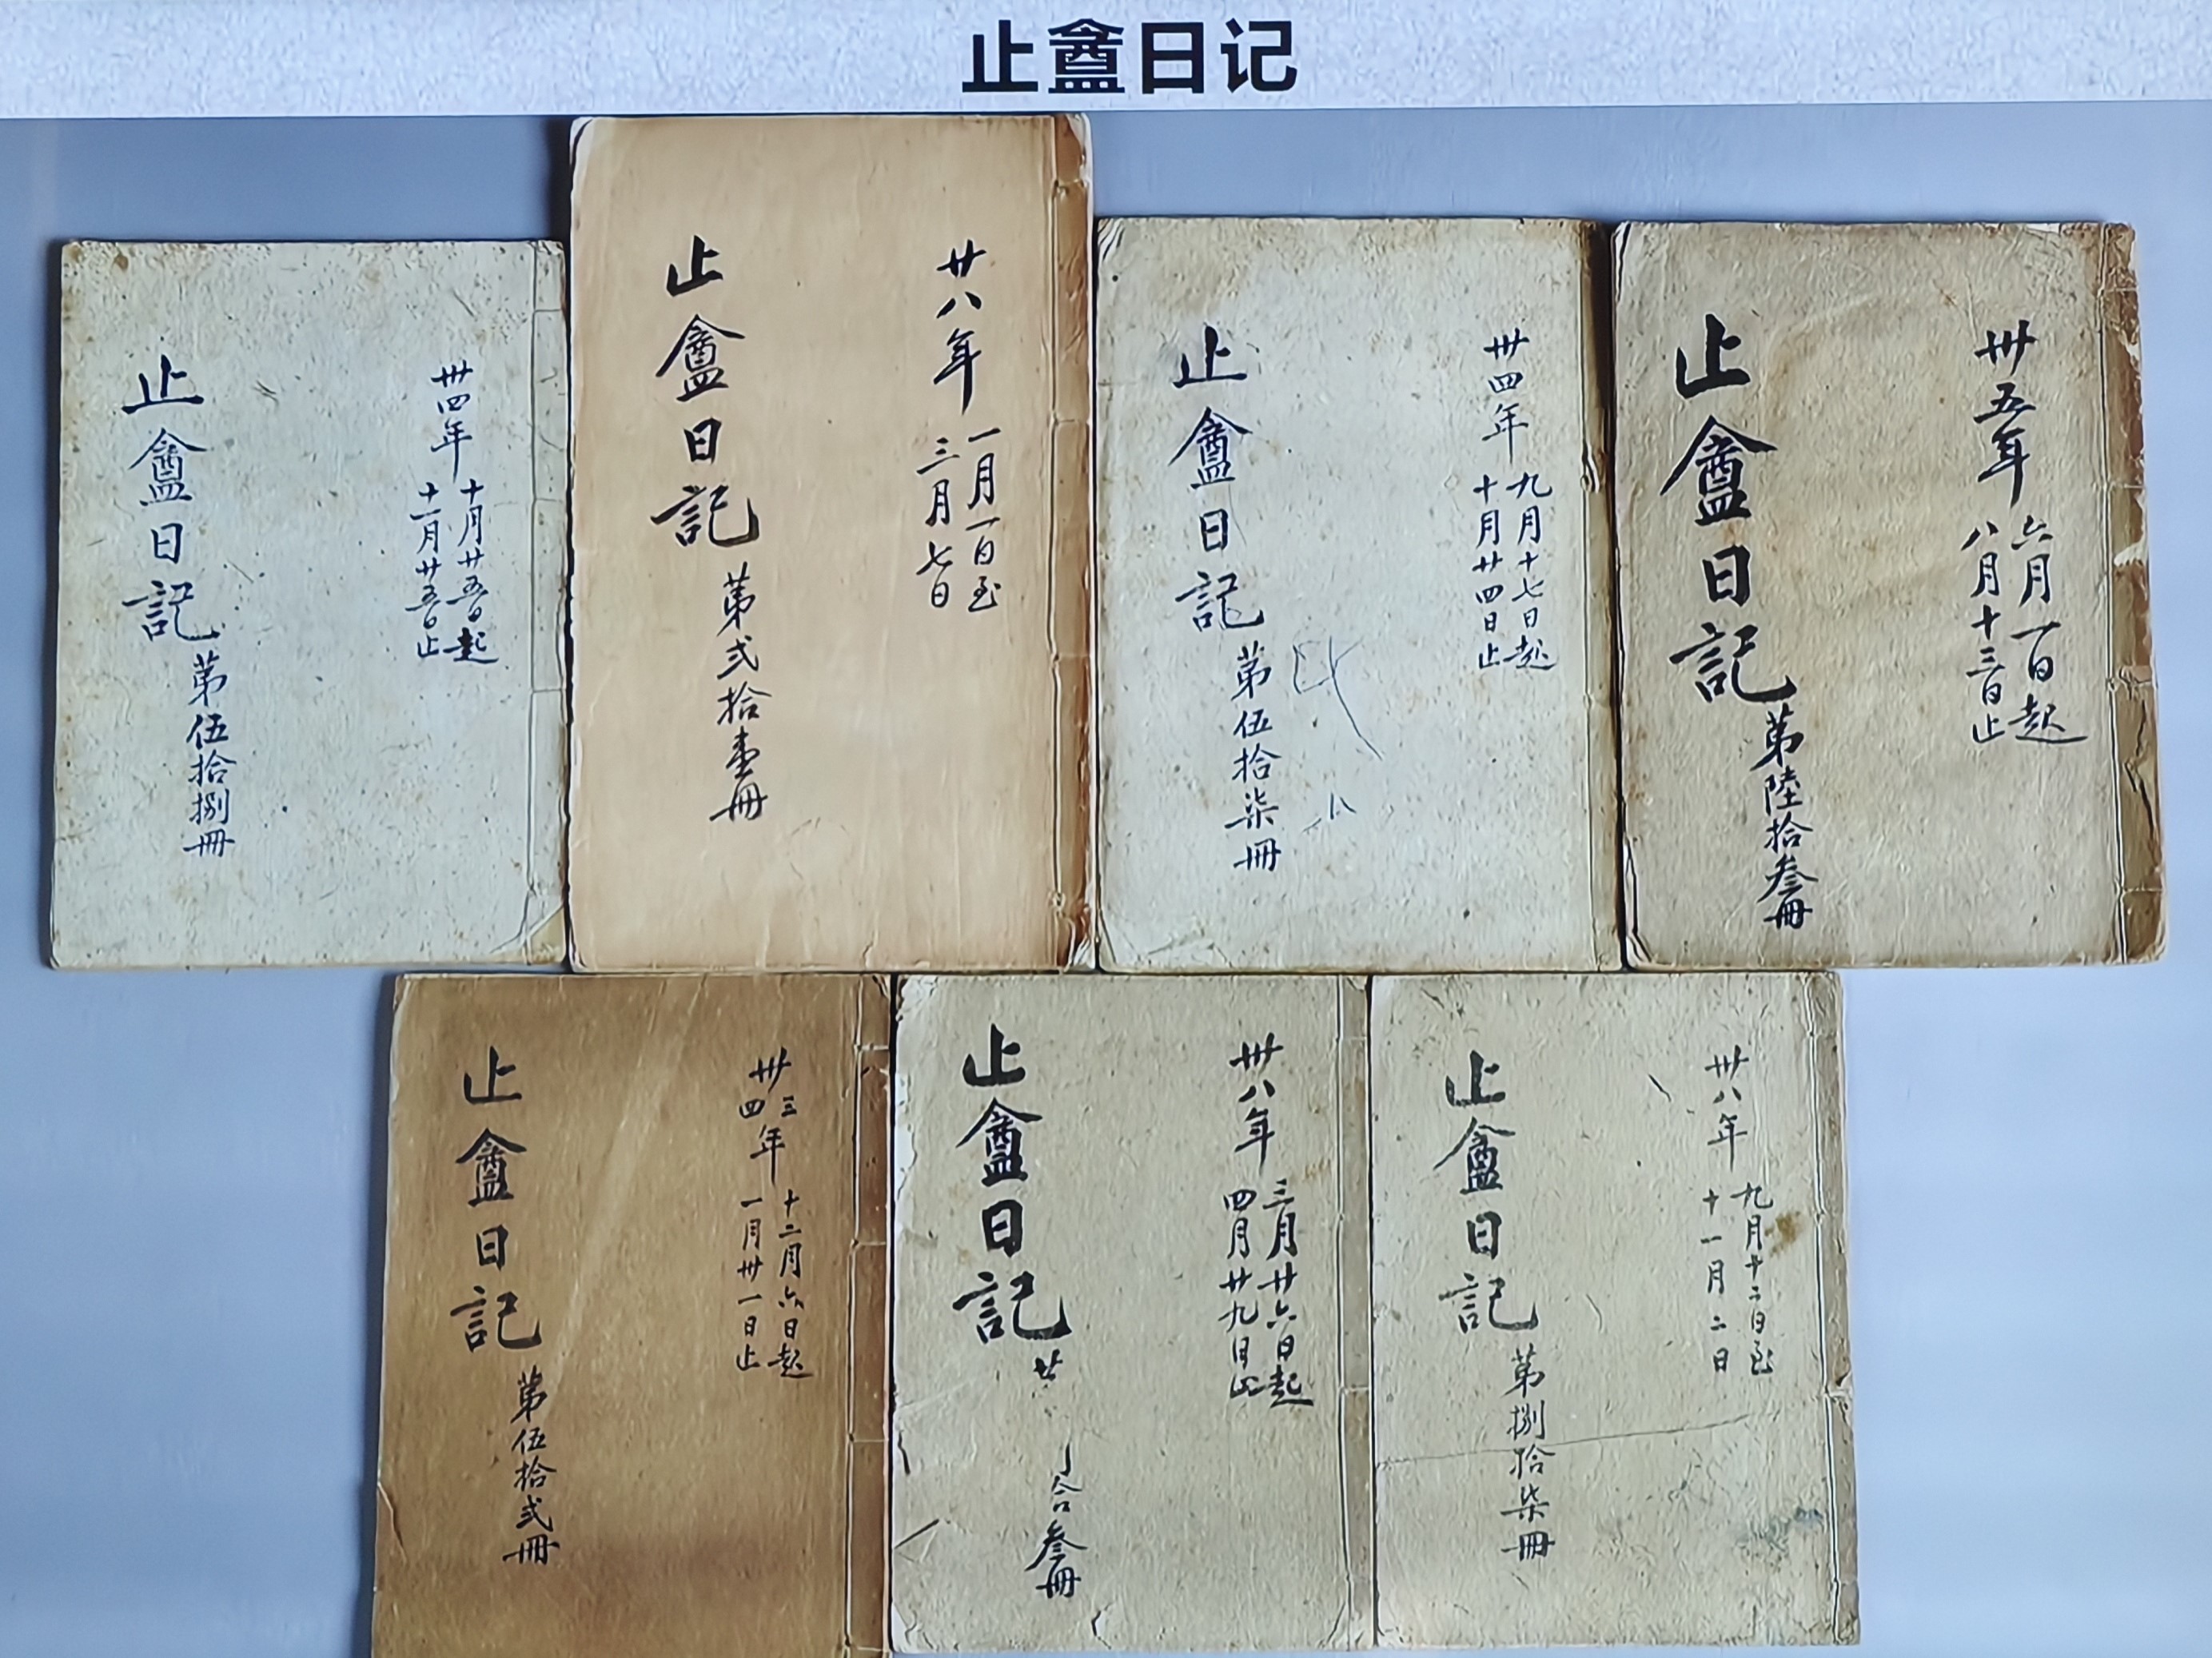 止盦日记
卅四年
十月廿五日起
十一月廿五日止
止盦日記
第伍拾捌冊
廿八年
一月一日至
三月七日
止盦日記
第弍拾壹冊
卅四年
九月十七日起
十月廿四日止
止盦日記
第伍拾柒冊
卅五年
六月一日起
八月十三日止
止盦日記
第陸拾叁冊
卅三四年
十二月六日起
一月卅一日止
止盦日記
第伍拾弍冊
卅八年
三月廿六日起
四月廿九日止
止盦日記
叁冊
卅八年
九月十二日至
十一月二日
止盦日記
第捌拾柒冊